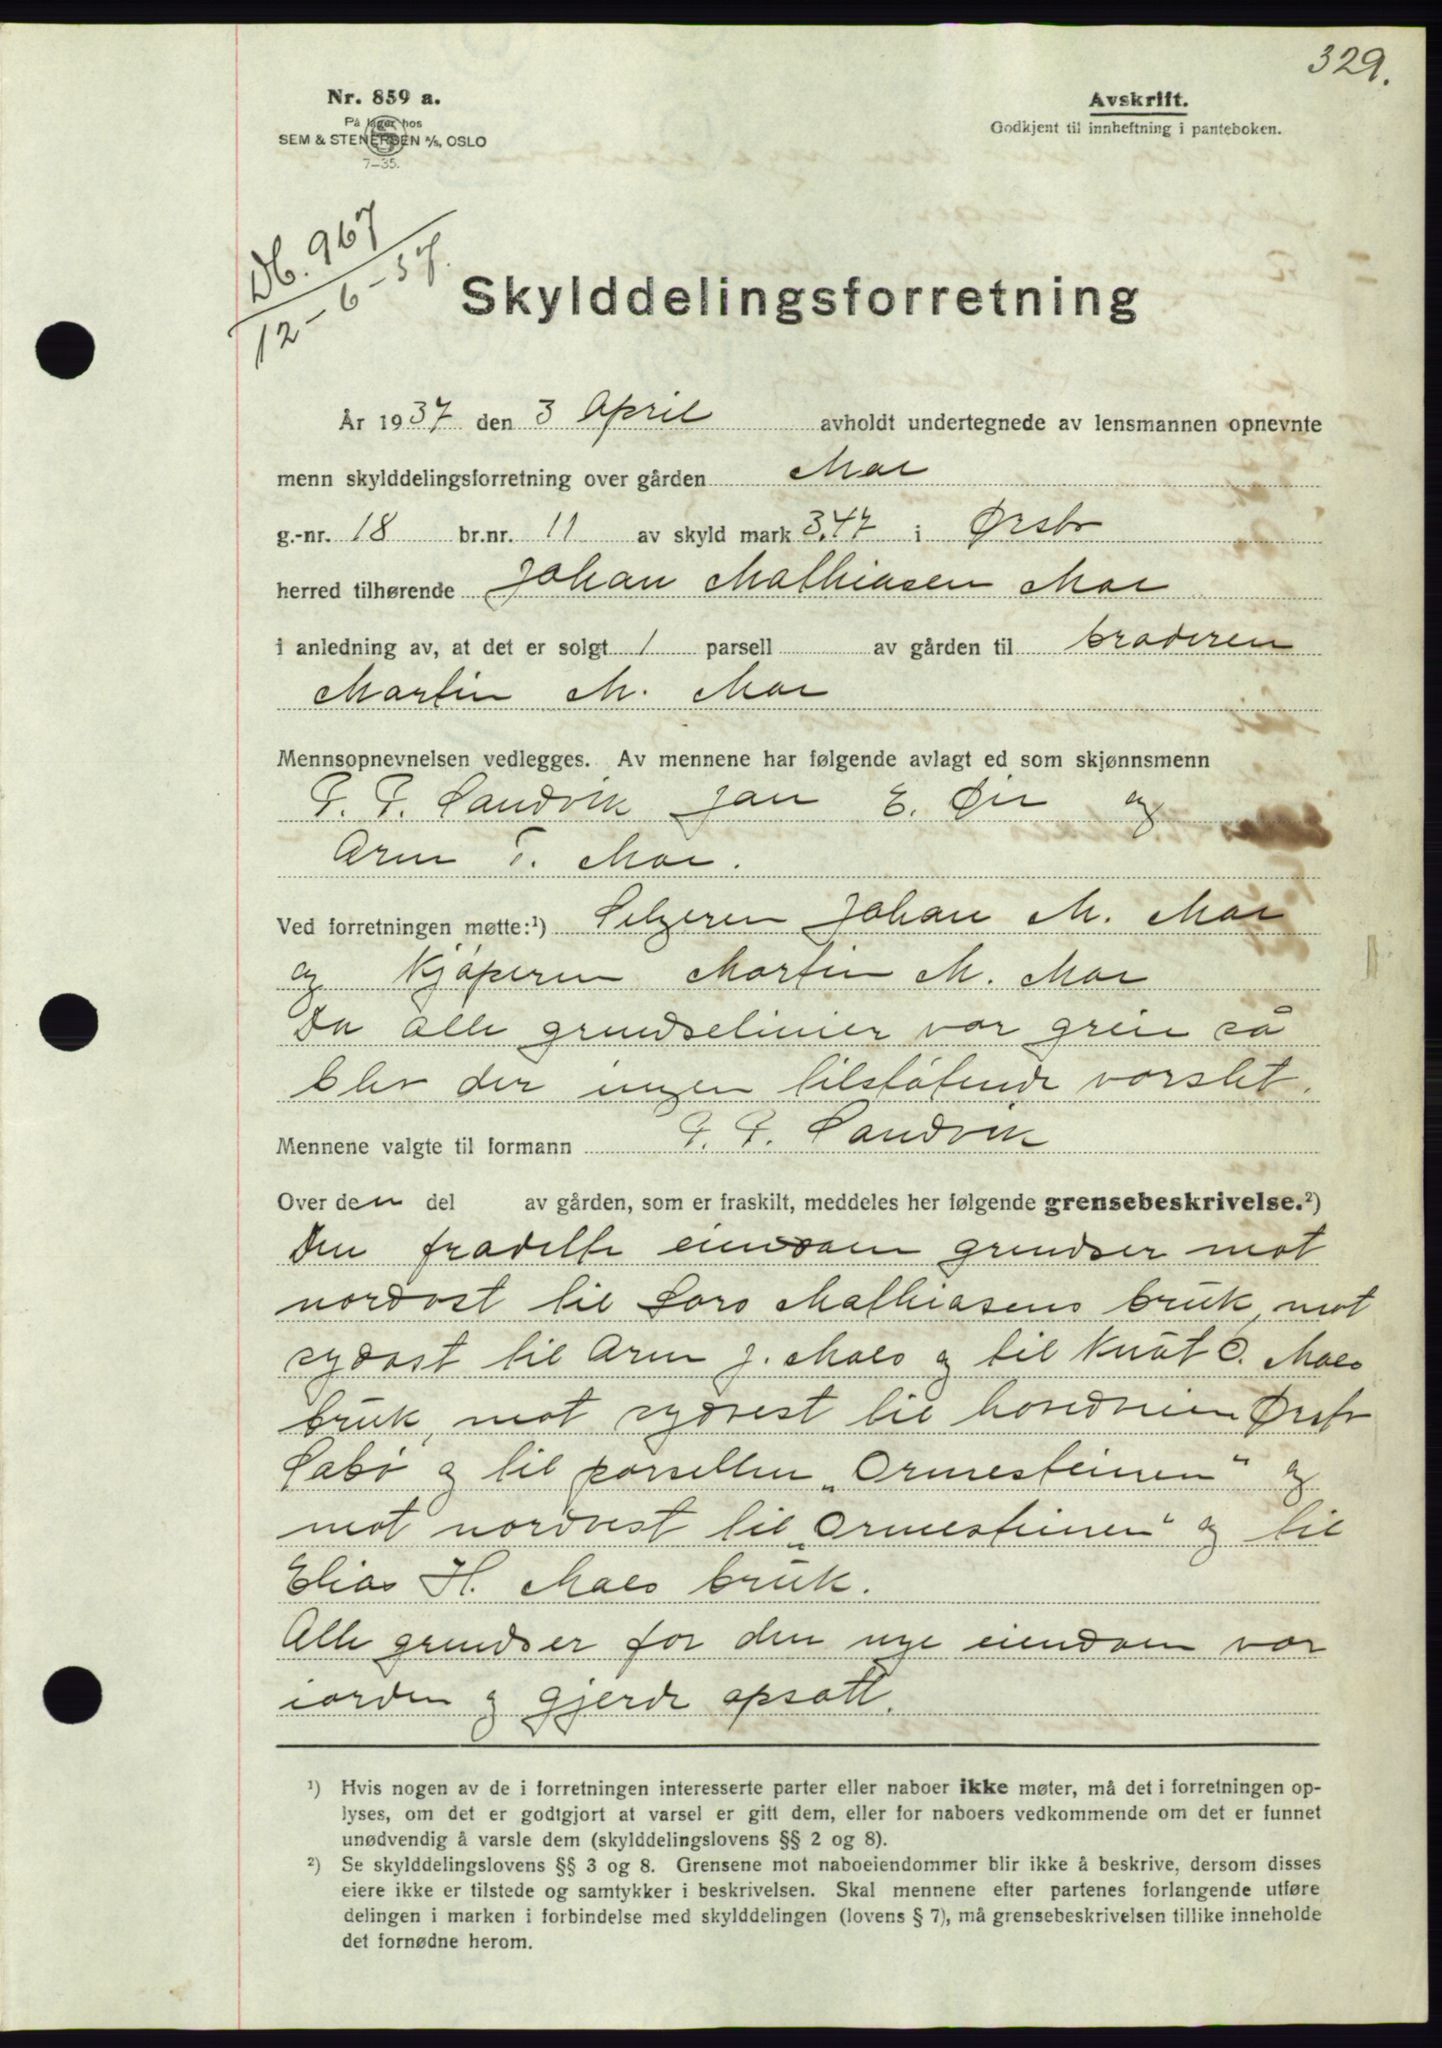 329.
Nr. 859 a.
På lager hos
SEM & STENERSEN A/S, OSLO
7-35.
Avskrift.
Godkjent til innheftning i panteboken.
Db. 967
12-6-37.
Skylddelingsforretning
År 1937 den 3 April avholdt undertegnede av lensmannen opnevnte
menn skylddelingsforretning over gården Moe
g.-nr. 18 br.nr. 11 av skyld mark 3.47 i Ørsta
herred tilhørende Johan Mathiasen Moe
i anledning av, at det er solgt 1 parsell av gården til broderen
Martin M. Moe
Mennsopnevnelsen vedlegges. Av mennene har følgende avlagt ed som skjønnsmenn
P. P. Sandvik Jon E. Øie og
Arne T. Moe.
Ved forretningen møtte:¹) Selgeren Johan M. Moe
og Kjøperen Martin M. Moe
Da alle grendselinier var greie så
blev der ingen tilstøtende varslet.
Mennene valgte til formann P. P. Sandvik
Over den del av gården, som er fraskilt, meddeles her følgende grensebeskrivelse.²)
Den fradelte eiendom grendser mot
nordost til Lars Mathiasens bruk, mot
sydost til Arne J. Moes og til Knut O. Moes
bruk, mot sydvest til hovedveien Ørsta
Sæbø og til parsellen „Ormesteinen" og
mot nordvest til „Ormesteinen" og til
Elias H. Moes bruk.
Alle grendser for den nye eiendom var
i orden og gjerde opsatt.
¹) Hvis nogen av de i forretningen interesserte parter eller naboer ikke møter, må det i forretningen op-
lyses, om det er godtgjort at varsel er gitt dem, eller for naboers vedkommende om det er funnet
unødvendig å varsle dem (skylddelingslovens §§ 2 og 8).
²) Se skylddelingslovens §§ 3 og 8. Grensene mot naboeiendommer blir ikke å beskrive, dersom disses
eiere ikke er tilstede og samtykker i beskrivelsen. Skal mennene efter partenes forlangende utføre
delingen i marken i forbindelse med skylddelingen (lovens § 7), må grensebeskrivelsen tillike inneholde
det fornødne herom.